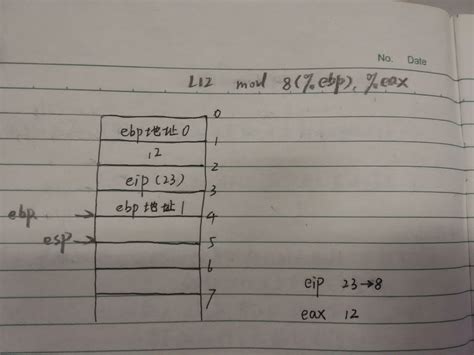 No. Date
L12 movl 8(%ebp), %eax
0
ebp地址0
1
12
2
eip(23)
3
ebp地址1
ebp 4
esp 5
6
7
eip 23→8
eax 12